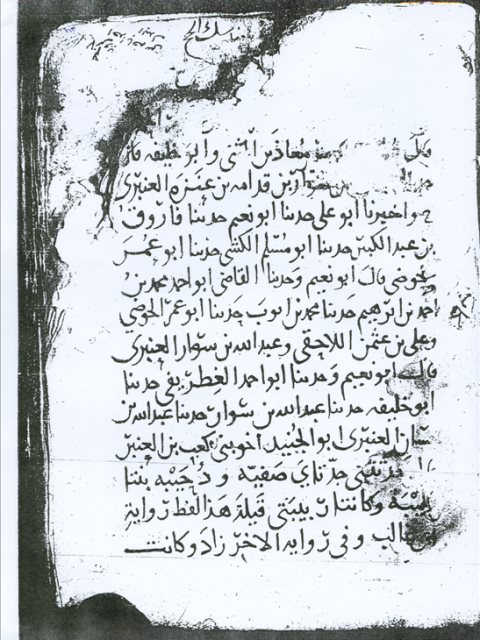 مناسك الحج
قال معاذ بن المثنى وابو خليفه قالا
بن قدامه بن عنزه العنبرى
ح واخبرنا ابو على حدثنا ابو نعيم حدثنا فاروق
بن عبد الكبير حدثنا ابو مسلم الكشى حدثنا ابو عمر
الحوضى قال ابو نعيم وحدثنا القاضى ابو احمد محمد بن
احمد بن ابرهيم حدثنا محمد بن ايوب حدثنا ابو عمر الحوضي
وعلى بن عثمن اللاحقى وعبد الله بن سوار العنبرى
قال ابو نعيم وحدثنا ابو احمد الغطريفى حدثنا
ابو خليفه حدثنا عبد الله بن سوار حدثنا عبد الله بن
حسان العنبرى ابو الجنيد اخو بنى كعب بن العنبر
حدثتنى جدتاى صفيه ودحيبه بنتا
عليبة وكانتا ربيبتى قيلة هذا لفظ رواية
ابى غالب وفى رواية الاخر زاد وكانت